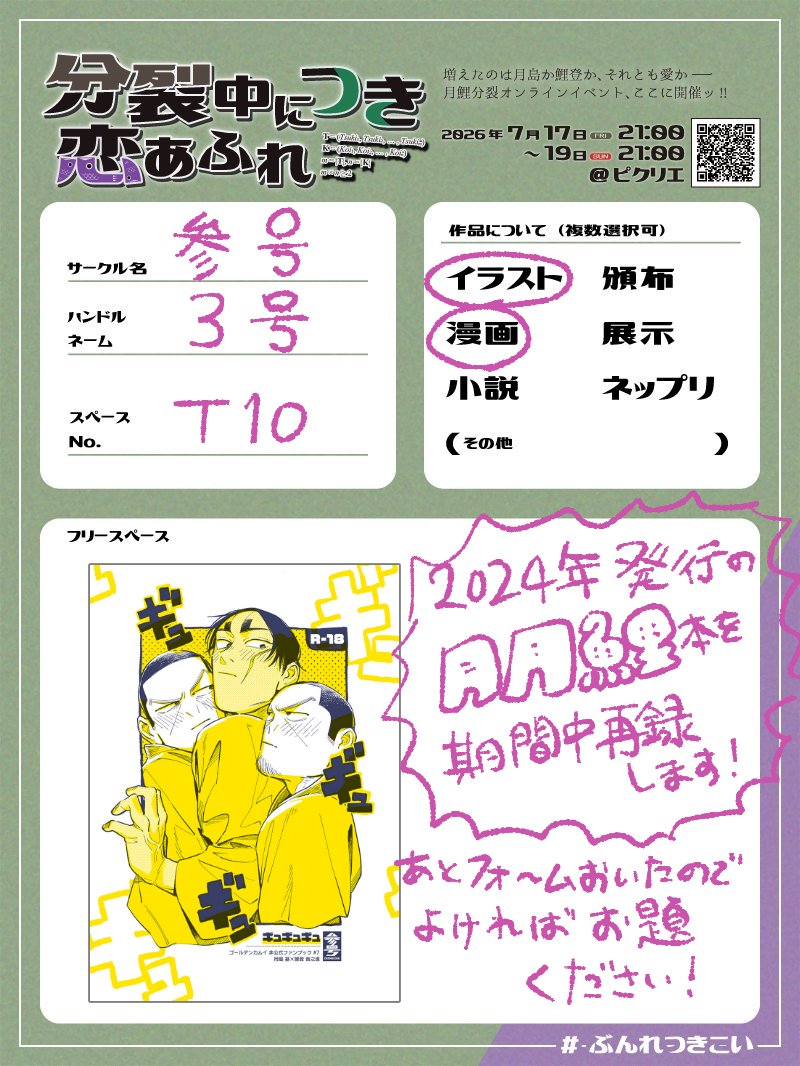 分裂中につき
恋あふれ
T={Tsuki₁, Tsuki₂, … , Tsukiₙ}
増えたのは月島か鯉登か、それとも愛か ──
月鯉分裂オンラインイベント、ここに開催ッ !!
2026年7月17日 FRI 21:00
～19日 SUN 21:00
@ピクリエ
サークル名 参号
ハンドルネーム 3号
スペースNo. T10
作品について（複数選択可）
イラスト 頒布
漫画 展示
小説 ネップリ
（その他 ）
フリースペース
ギュ
R-18
ギュ
ギュ
ギュ
ギュ
ギュギュギュ
参号
ゴールデンカムイ 非公式ファンブック #7
月島 基×鯉登 音之進
2024年発行の
月月鯉本を
期間中再録
します！
あとフォームおいたので
よければお題
ください！
#-ぶんれつきこい